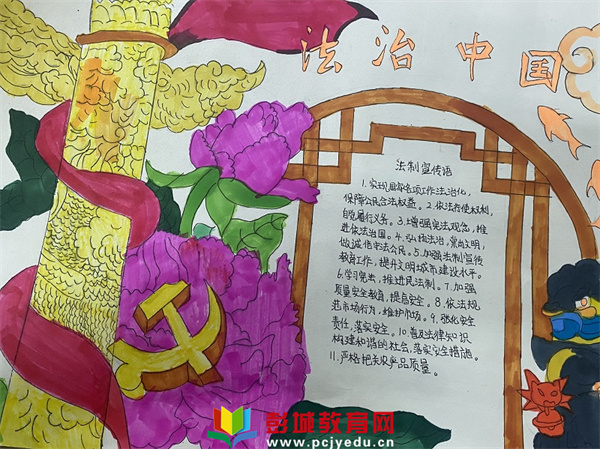 法治中国
法制宣传语
1.实现国家各项工作法治化，
保障公民合法权益。2.依法行使权利，
自觉履行义务。3.增强宪法观念，推
进依法治国。4.弘扬法治，崇尚文明，
做诚信守法公民。5.加强法制宣传
教育工作，提升文明城市建设水平。
6.学习宪法，推进民法制。7.加强
质量安全教育，提高安全。8.依法规
范市场行为，维护市场。9.强化安全
责任，落实安全。10.普及法律知识
构建和谐的社会，落实安全措施。
11.严格把关农产品质量。
彭城教育网
www.pcjyedu.cn